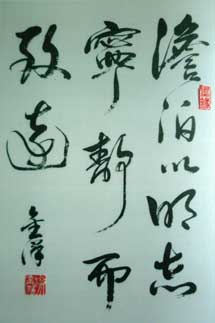 澹泊以明志
寧靜而
致遠